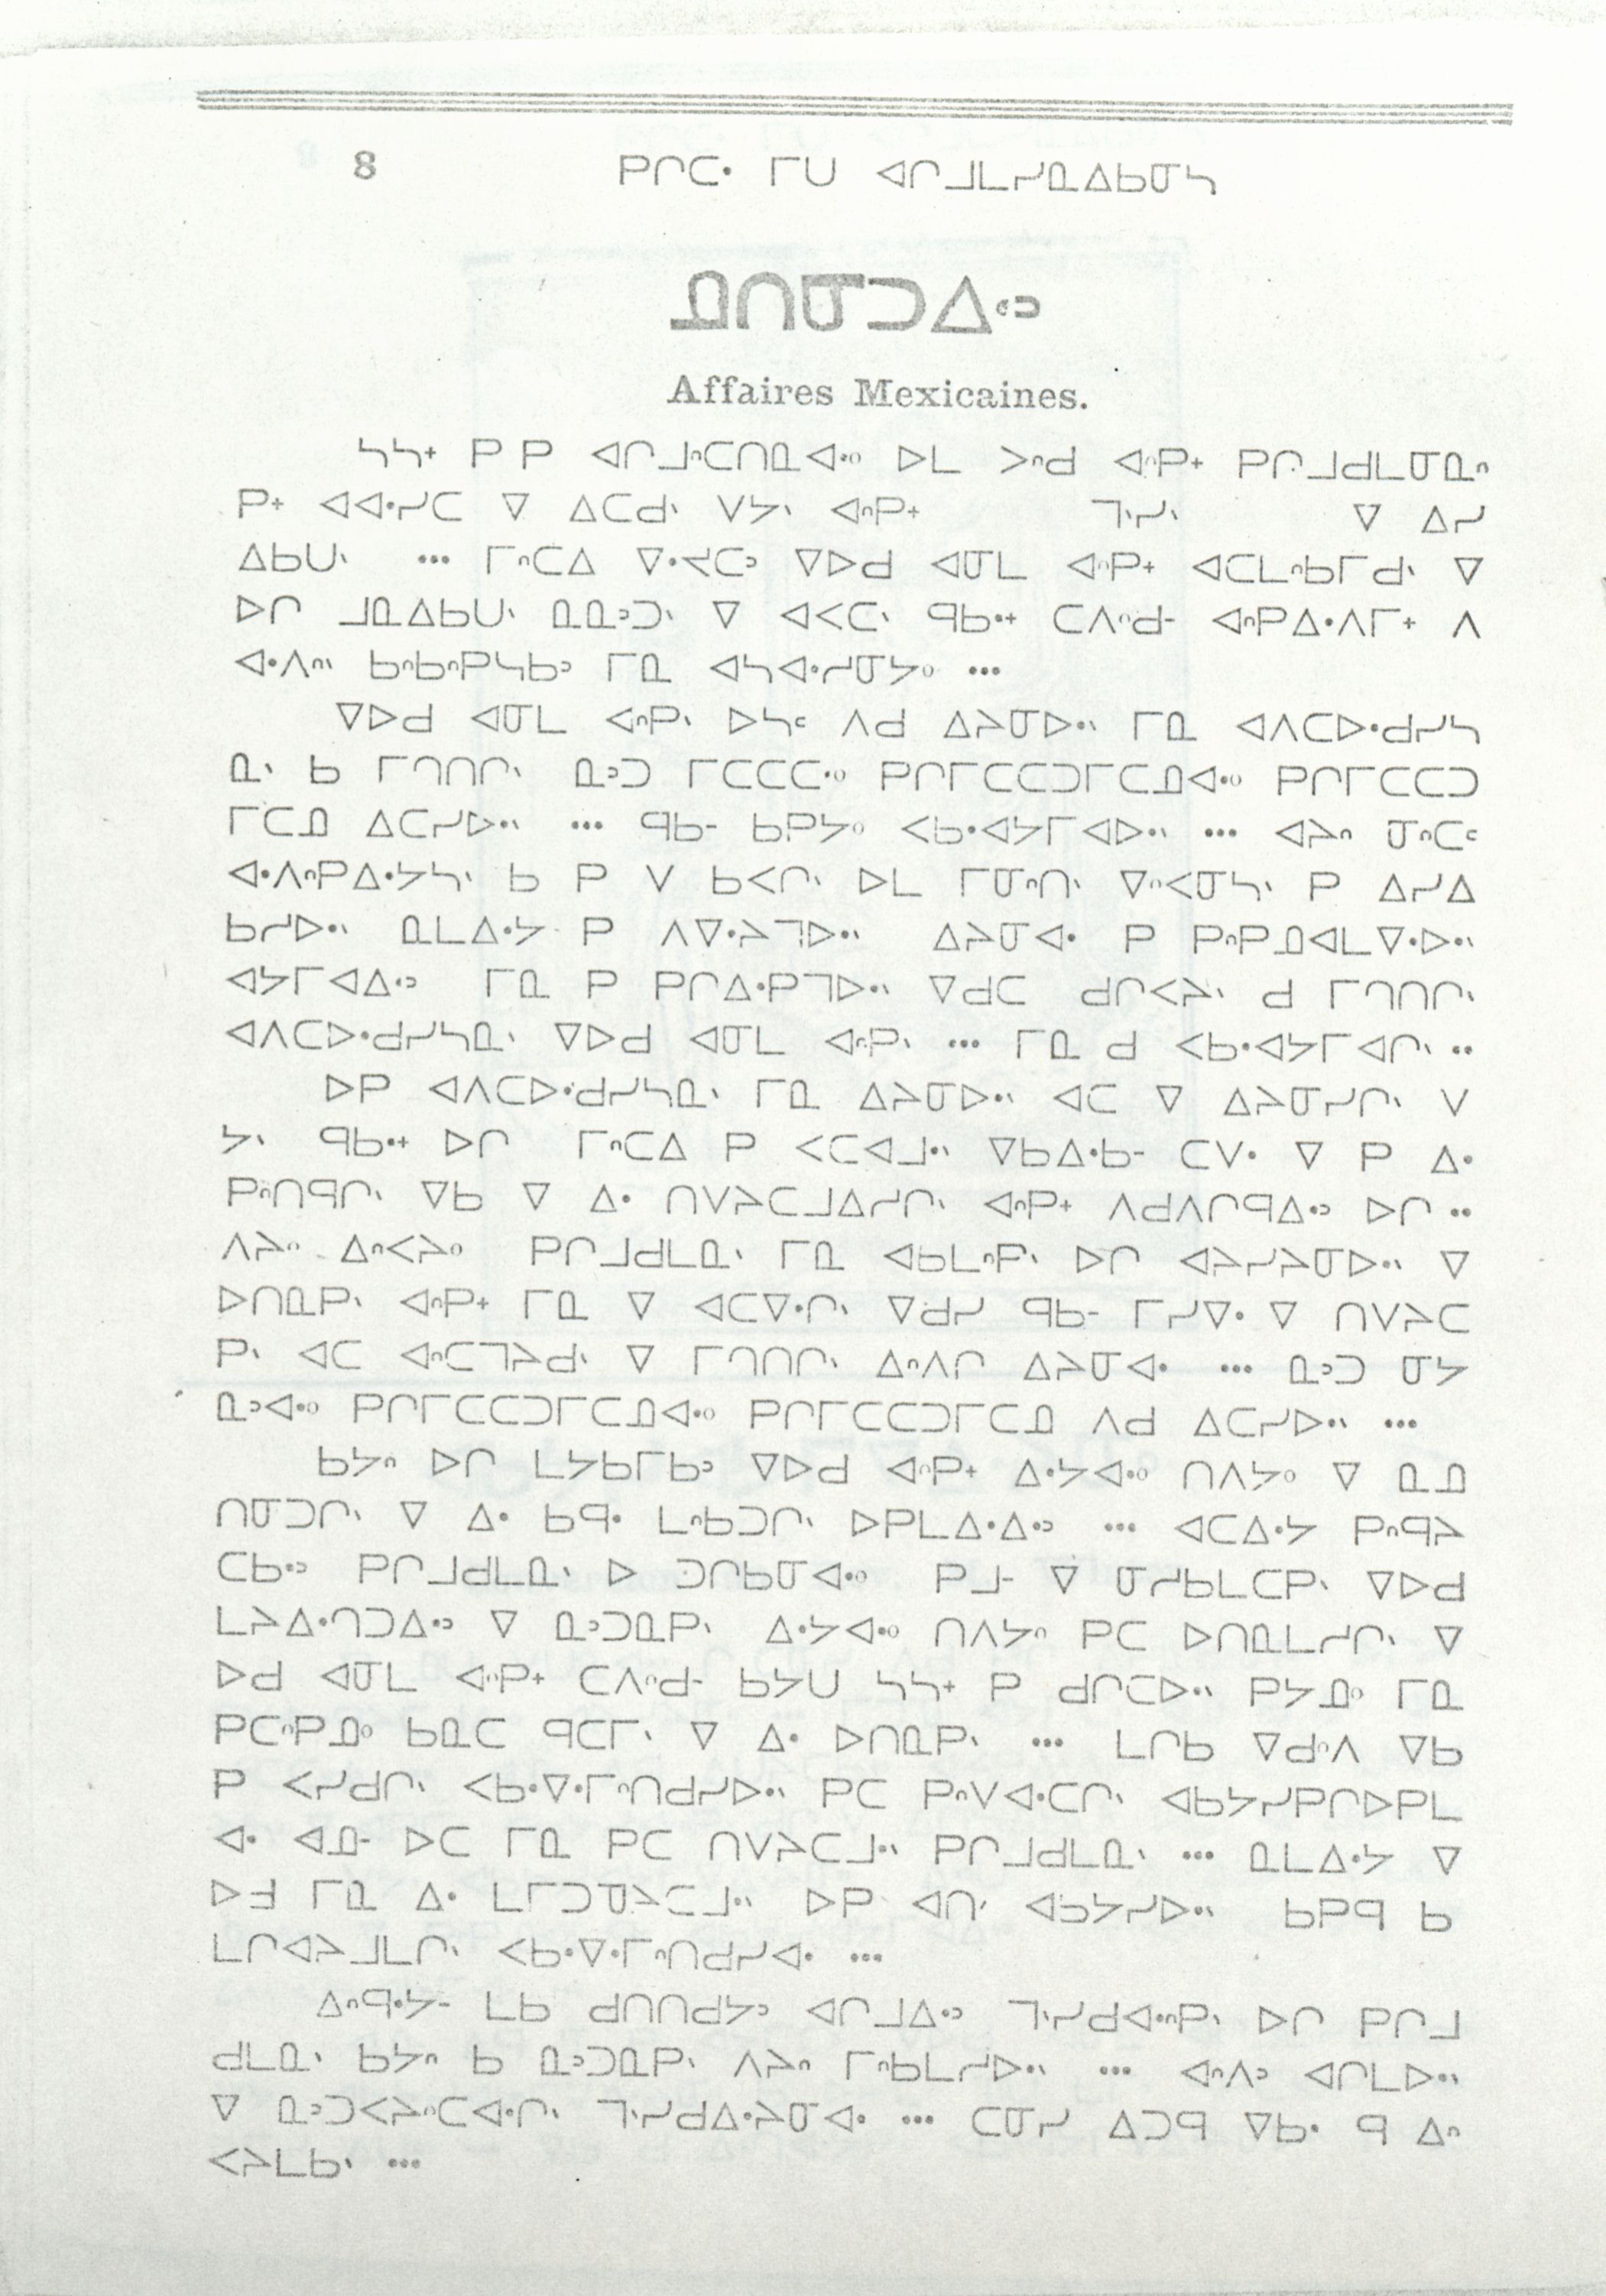 8 ᑭᒋᑕᐧ ᒥᑌ ᐊᒋᒧᒪᓯᓇᐃᑲᓂᓴ
ᓄᑎᓂᑐᐃᐧᐣ
Affaires Mexicaines.
ᓴᓴᕀ ᑭ ᑭ ᐊᒋᒧᐢᑕᑎᓇᐊᐧᐤ ᐅᒪ ᐳᐢᑯ ᐊᐢᑭᕀ ᑭᒋᒧᑯᒪᓂᓇᐢ
ᑭᕀ ᐊᐊᐧᓯᑕ ᐁ ᐃᑕᑯᐠ ᐯᔭᐠ ᐊᐢᑭᕀ ᒣᐠᓯᐠ ᐁ ᐃᓯ
ᐃᑲᑌᐠ ... ᒥᐢᑕᐃ ᐁᐧᐸᑕᐣ ᐁᐅᑯ ᐊᓂᒪ ᐊᐢᑭᕀ ᐊᑕᒪᐢᑲᒥᑯᐠ ᐁ
ᐅᒋ ᒧᓇᐃᑲᑌᐠ ᓇᓇᐣᑐᐠ ᐁ ᐊᐸᑕᐠ ᑫᑲᐧᕀ ᑕᐱᐢᑯ- ᐊᐢᑭᐃᐧᐱᒥᕀ ᐱ
ᐊᐧᐱᐢᐠ ᑲᐢᑲᐢᑭᓴᑲᐣ ᒥᓇ ᐊᓴᐊᐧᓯᓂᔭᐤ ...
ᐁᐅᑯ ᐊᓂᒪ ᐊᐢᑭᐠ ᐅᓴᒼ ᐱᑯ ᐃᔨᓂᐅᐧᐠ ᒥᓇ ᐊᐱᑕᐅᐧᑯᓯᓴ
ᓇᐠ ᑲ ᒥᑎᑎᒋᐠ ᓇᐣᑐ ᒥᑕᑕᑕᐧᐤ ᑭᒋᒥᑕᑕᑐᒥᑕᓄᐊᐧᐤ ᑭᒋᒥᑕᑕᑐ
ᒥᑕᓄ ᐃᑕᓯᐅᐧᐠ ... ᑫᑲ- ᑲᑭᔭᐤ ᐸᑲᐧᐊᔭᒥᐊᐅᐧᐠ ... ᐊᔨᐢ ᓂᐢᑕᒼ
ᐊᐧᐱᐢᑭᐃᐧᔭᓴᐠ ᑲ ᑭ ᐯ ᑲᐸᒋᐠ ᐅᒪ ᒥᓂᐢᑎᐠ ᐁᐢᐸᓂᓴᐠ ᑭ ᐃᓯᐃ
ᑲᓱᐅᐧᐠ ᓇᒪᐃᐧᔭ ᑭ ᐱᐁᐧᔨᒣᐅᐧᐠ ᐃᔨᓂᐊᐧ ᑭ ᑭᐢᑭᓄᐊᒪᐁᐧᐅᐧᐠ
ᐊᔭᒥᐊᐃᐧᐣ ᒥᓇ ᑭ ᑭᒋᐃᐧᑭᒣᐅᐧᐠ ᐁᑯᑕ ᑯᒋᐸᔨᐠ ᑯ ᒥᑎᑎᒋᐠ
ᐊᐱᑕᐅᐧᑯᓯᓴᓇᐠ ᐁᐅᑯ ᐊᓂᒪ ᐊᐢᑭᐠ ... ᒥᓇ ᑯ ᐸᑲᐧᐊᔭᒥᐊᒋᐠ ..
ᐅᑭ ᐊᐱᑕᐅᐧᑯᓯᓴᓇᐠ ᒥᓇ ᐃᔨᓂᐅᐧᐠ ᐊᑕ ᐁ ᐃᔨᓂᓯᒋᐠ ᐯ
ᔭᐠ ᑫᑲᐧᕀ ᐅᒋ ᒥᐢᑕᐃ ᑭ ᐸᑕᐊᒧᐧᐠ ᐁᑲᐃᐧᑲ- ᑕᐯᐧ ᐁ ᑭ ᐃᐧ
ᑭᐢᑎᑫᒋᐠ ᐁᑲ ᐁ ᐃᐧ ᑎᐯᔨᑕᒧᐃᓱᒋᐠ ᐊᐢᑭᕀ ᐱᑯᐱᒋᑫᐃᐧᐣ ᐅᒋ ..
ᐱᔨᐢ ᐃᐢᐸᔨᐤ ᑭᒋᒧᑯᒪᓇᐠ ᒥᓇ ᐊᑲᒪᐢᑭᐠ ᐅᒋ ᐊᔨᓯᔨᓂᐅᐧᐠ ᐁ
ᐅᑎᓇᑭᐠ ᐊᐢᑭᕀ ᒥᓇ ᐁ ᐊᑕᐁᐧᒋᐠ ᐁᑯᓯ ᑫᑲ- ᒥᓯᐁᐧ ᐁ ᑎᐯᔨᑕ
ᑭᐠ ᐊᑕ ᐊᐢᑕᒣᔨᑯᐠ ᐁ ᒥᑎᑎᒋᐠ ᐃᐢᐱᒋ ᐃᔨᓂᐊᐧ ... ᓇᐣᑐ ᓂᔭ
ᓇᐣᐊᐧᐤ ᑭᒋᒥᑕᑕᑐᒥᑕᓄᐊᐧᐤ ᑭᒋᒥᑕᑕᑐᒥᑕᓄ ᐱᑯ ᐃᑕᓯᐅᐧᐠ ...
ᑲᔭᐢ ᐅᒋ ᒪᔭᑲᒥᑲᐣ ᐁᐅᑯ ᐊᐢᑭᕀ ᐃᐧᔭᐊᐧᐤ ᑎᐱᔭᐤ ᐁ ᓇᓄ
ᑎᓂᑐᒋᐠ ᐁ ᐃᐧ ᑲᑫᐧ ᒪᐢᑲᑐᒋᐠ ᐅᑭᒪᐃᐧᐃᐧᐣ ... ᐊᑕᐃᐧᔭ ᑭᐢᑫᔨ
ᑕᑲᐧᐣ ᑭᒋᒧᑯᒪᓇᐠ ᐅ ᑐᒋᑲᓂᐊᐧᐤ ᑭᒧ- ᐁ ᓂᓱᑲᒪᑕᑭᐠ ᐁᐅᑯ
ᒪᔨᐃᐧᑎᑐᐃᐧᐣ ᐁ ᓇᐣᑐᓇᑭᐠ ᐃᐧᔭᐊᐧᐤ ᑎᐱᔭᐢ ᑭᑕ ᐅᑎᓇᒪᓱᒋᐠ ᐁ
ᐅᑯ ᐊᓂᒪ ᐊᐢᑭᕀ ᑕᐱᐢᑯ- ᑲᔭᑌ ᓴᓴᕀ ᑭ ᑯᒋᑕᐅᐧᐠ ᑭᔭᓄᐤ ᒥᓇ
ᑭᑕᐢᑭᓄᐤ ᑲᓇᑕ ᑫᑕᒥᐠ ᐁ ᐃᐧ ᐅᑎᓇᑭᐠ ... ᒪᒋᑲ ᐁᑯᐢᐱ ᐁᑲ
ᑭ ᐸᓯᑯᒋᐠ ᐸᑲᐧᐁᐧᒥᐢᑎᑯᓯᐅᐧᐠ ᑭᑕ ᑭᐢᐯᐊᐧᑕᒋᐠ ᐊᑲᔭᓯᑭᒋᐅᑭᒪ
ᐊᐧ ᐊᓄ- ᐅᑕ ᒥᓇ ᑭᑕ ᑎᐯᔨᑕᒧᐧᐠ ᑭᒋᒧᑯᒪᓇᐠ ... ᓇᒪᐃᐧᔭ ᐁ
ᐅᖁ ᒥᓇ ᐃᐧ ᒪᒥᑐᓀᔨᑕᒧᐧᐠ ᐅᑭ ᐊᑎᐟ ᐊᑲᔭᓯᐅᐧᐠ ᑲᑭᑫ ᑲ
ᒪᒋᐊᔨᒧᒪᒋᐠ ᐸᑲᐧᐁᐧᒥᐢᑎᑯᓯᐊᐧ ...
ᐃᐢᑫᐧᔭ- ᒪᑲ ᑯᑎᑎᑯᔭᐣ ᐊᒋᒧᐃᐧᐣ ᒣᐠᓯᑯᐊᐧᐢᑭᐠ ᐅᒋ ᑭᒋᒧ
ᑯᒪᓇᐠ ᑲᔭᐢ ᑲ ᓇᐣᑐᓇᑭᐠ ᐱᔨᐢ ᒥᐢᑲᒪᓱᐅᐧᐠ ... ᐊᐢᐱᐣ ᐊᒋᒪᐅᐧᐠ
ᐁ ᓇᐣᑐᐸᔨᐢᑕᐊᐧᒋᐠ ᒣᐠᓯᑯᐃᐧᔨᓂᐊᐧ ... ᑕᓂᓯ ᐃᑐᑫ ᐁᑲᐧ ᑫ ᐃᐢ
ᐸᔨᒪᑲᐠ ...